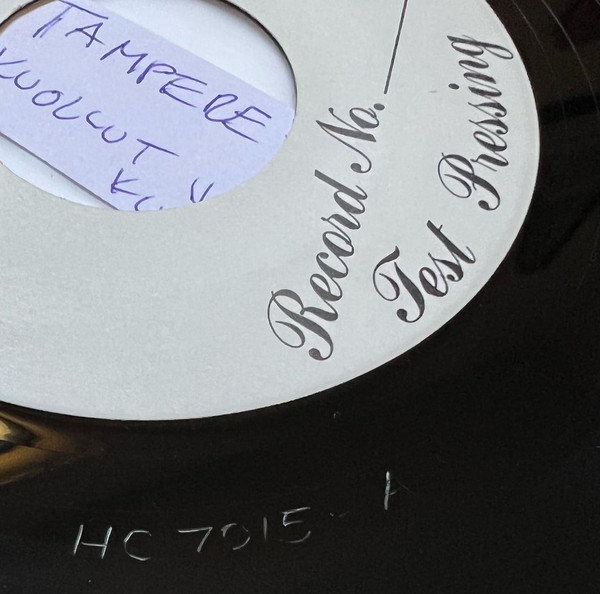 TAMPERE
KUOLLUT
Record No.
Test Pressing
HC 7015-A